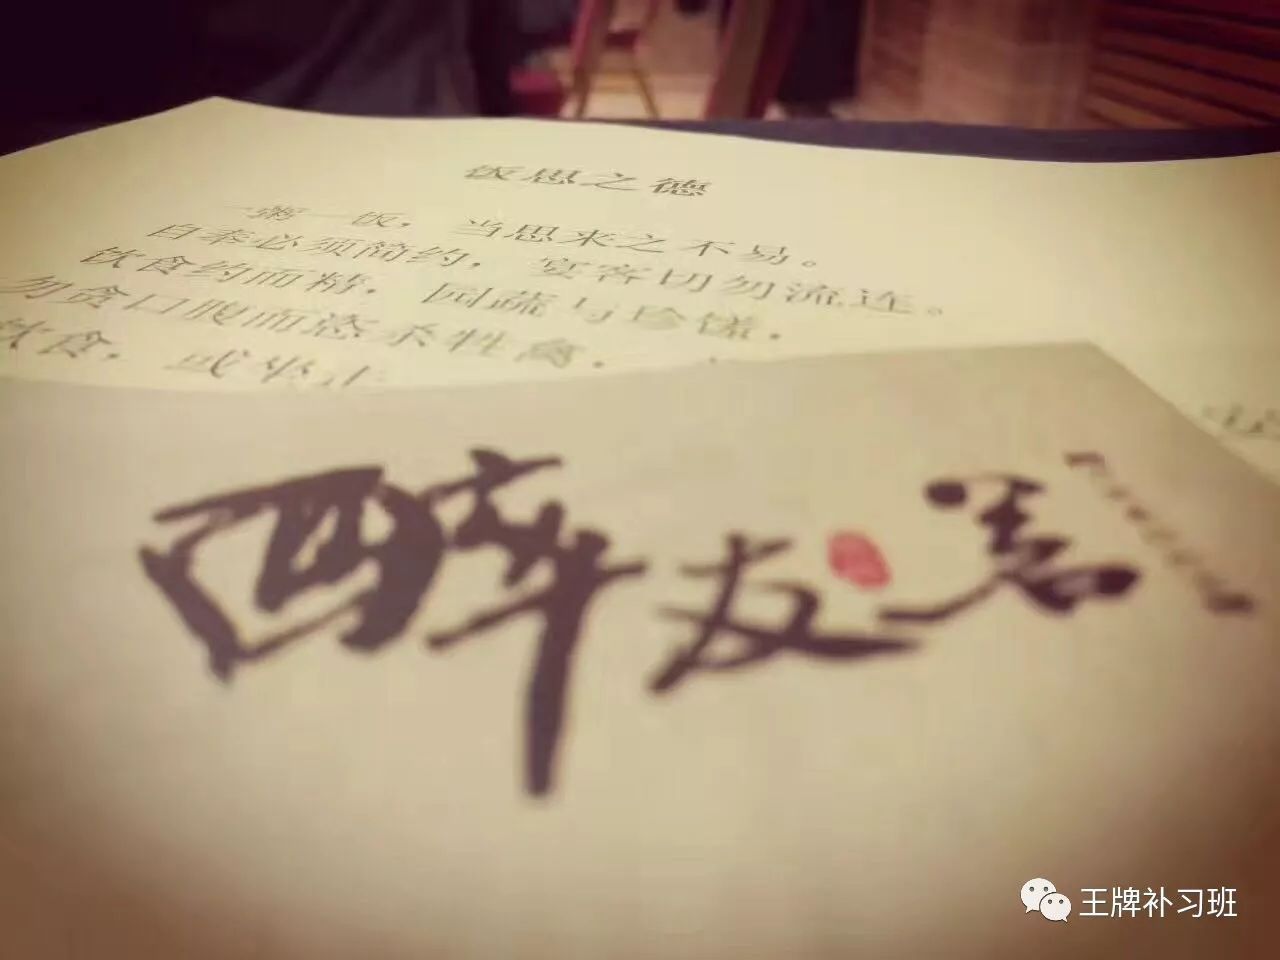 饭思之德
一粥一饭，当思来之不易。
自奉必须简约，宴客切勿流连。
饮食约而精，园蔬与珍馐，
勿贪口腹而恣杀牲禽，
饮食，或坐
醉友
王牌补习班